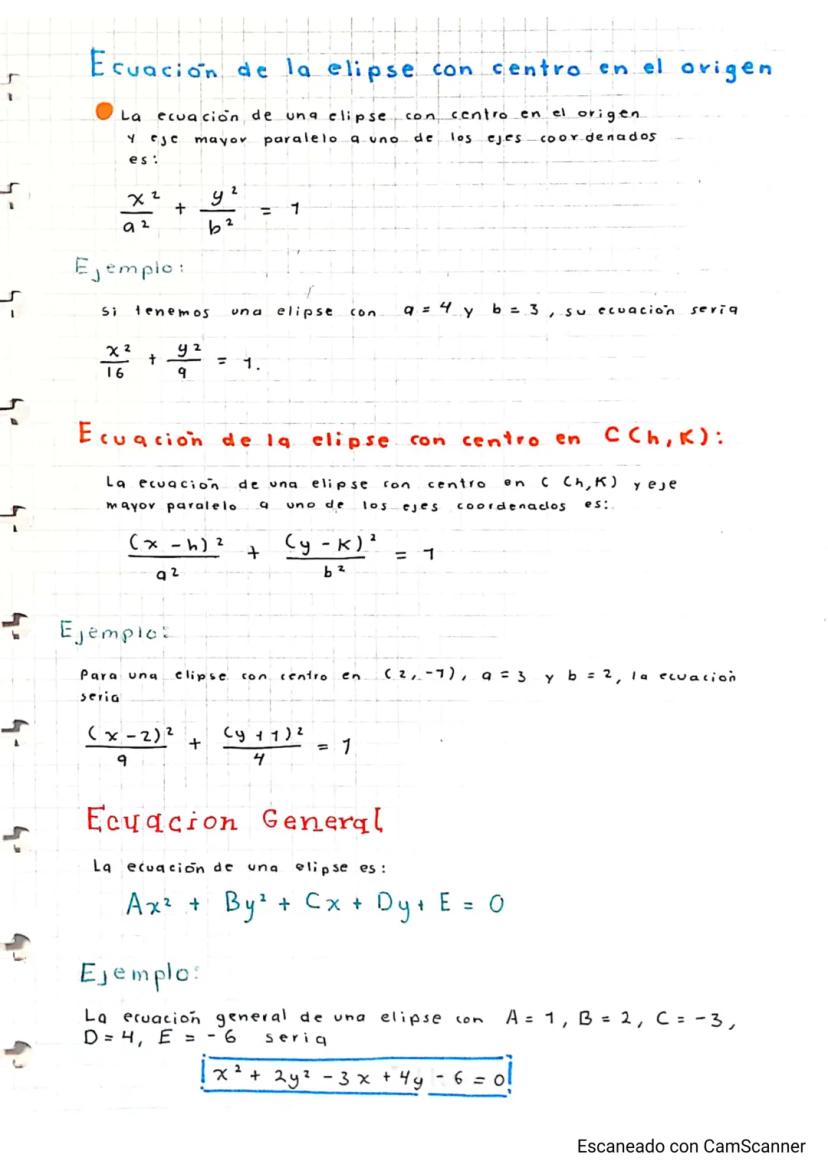 Ecuación de la elipse con centro en el origen
La ecuación de una elipse con centro en el origen
y eje mayor paralelo a uno de los ejes coordenados
es:
x²/a² + y²/b² = 1
Ejemplo:
Si tenemos una elipse con a = 4 y b = 3, su ecuación sería
x²/16 + y²/9 = 1.
Ecuación de la elipse con centro en C(h,K):
La ecuación de una elipse con centro en C (h,K) y eje
mayor paralelo a uno de los ejes coordenados es:
(x - h)²/a² + (y - K)²/b² = 1
Ejemplo:
Para una elipse con centro en (2,-1), a = 3 y b = 2, la ecuación
sería
(x - 2)²/9 + (y + 1)²/4 = 1
Ecuacion General
La ecuación de una elipse es:
Ax² + By² + Cx + Dy + E = 0
Ejemplo:
La ecuación general de una elipse con A = 1, B = 2, C = -3,
D = 4, E = -6 sería
x² + 2y² - 3x + 4y - 6 = 0
Escaneado con CamScanner